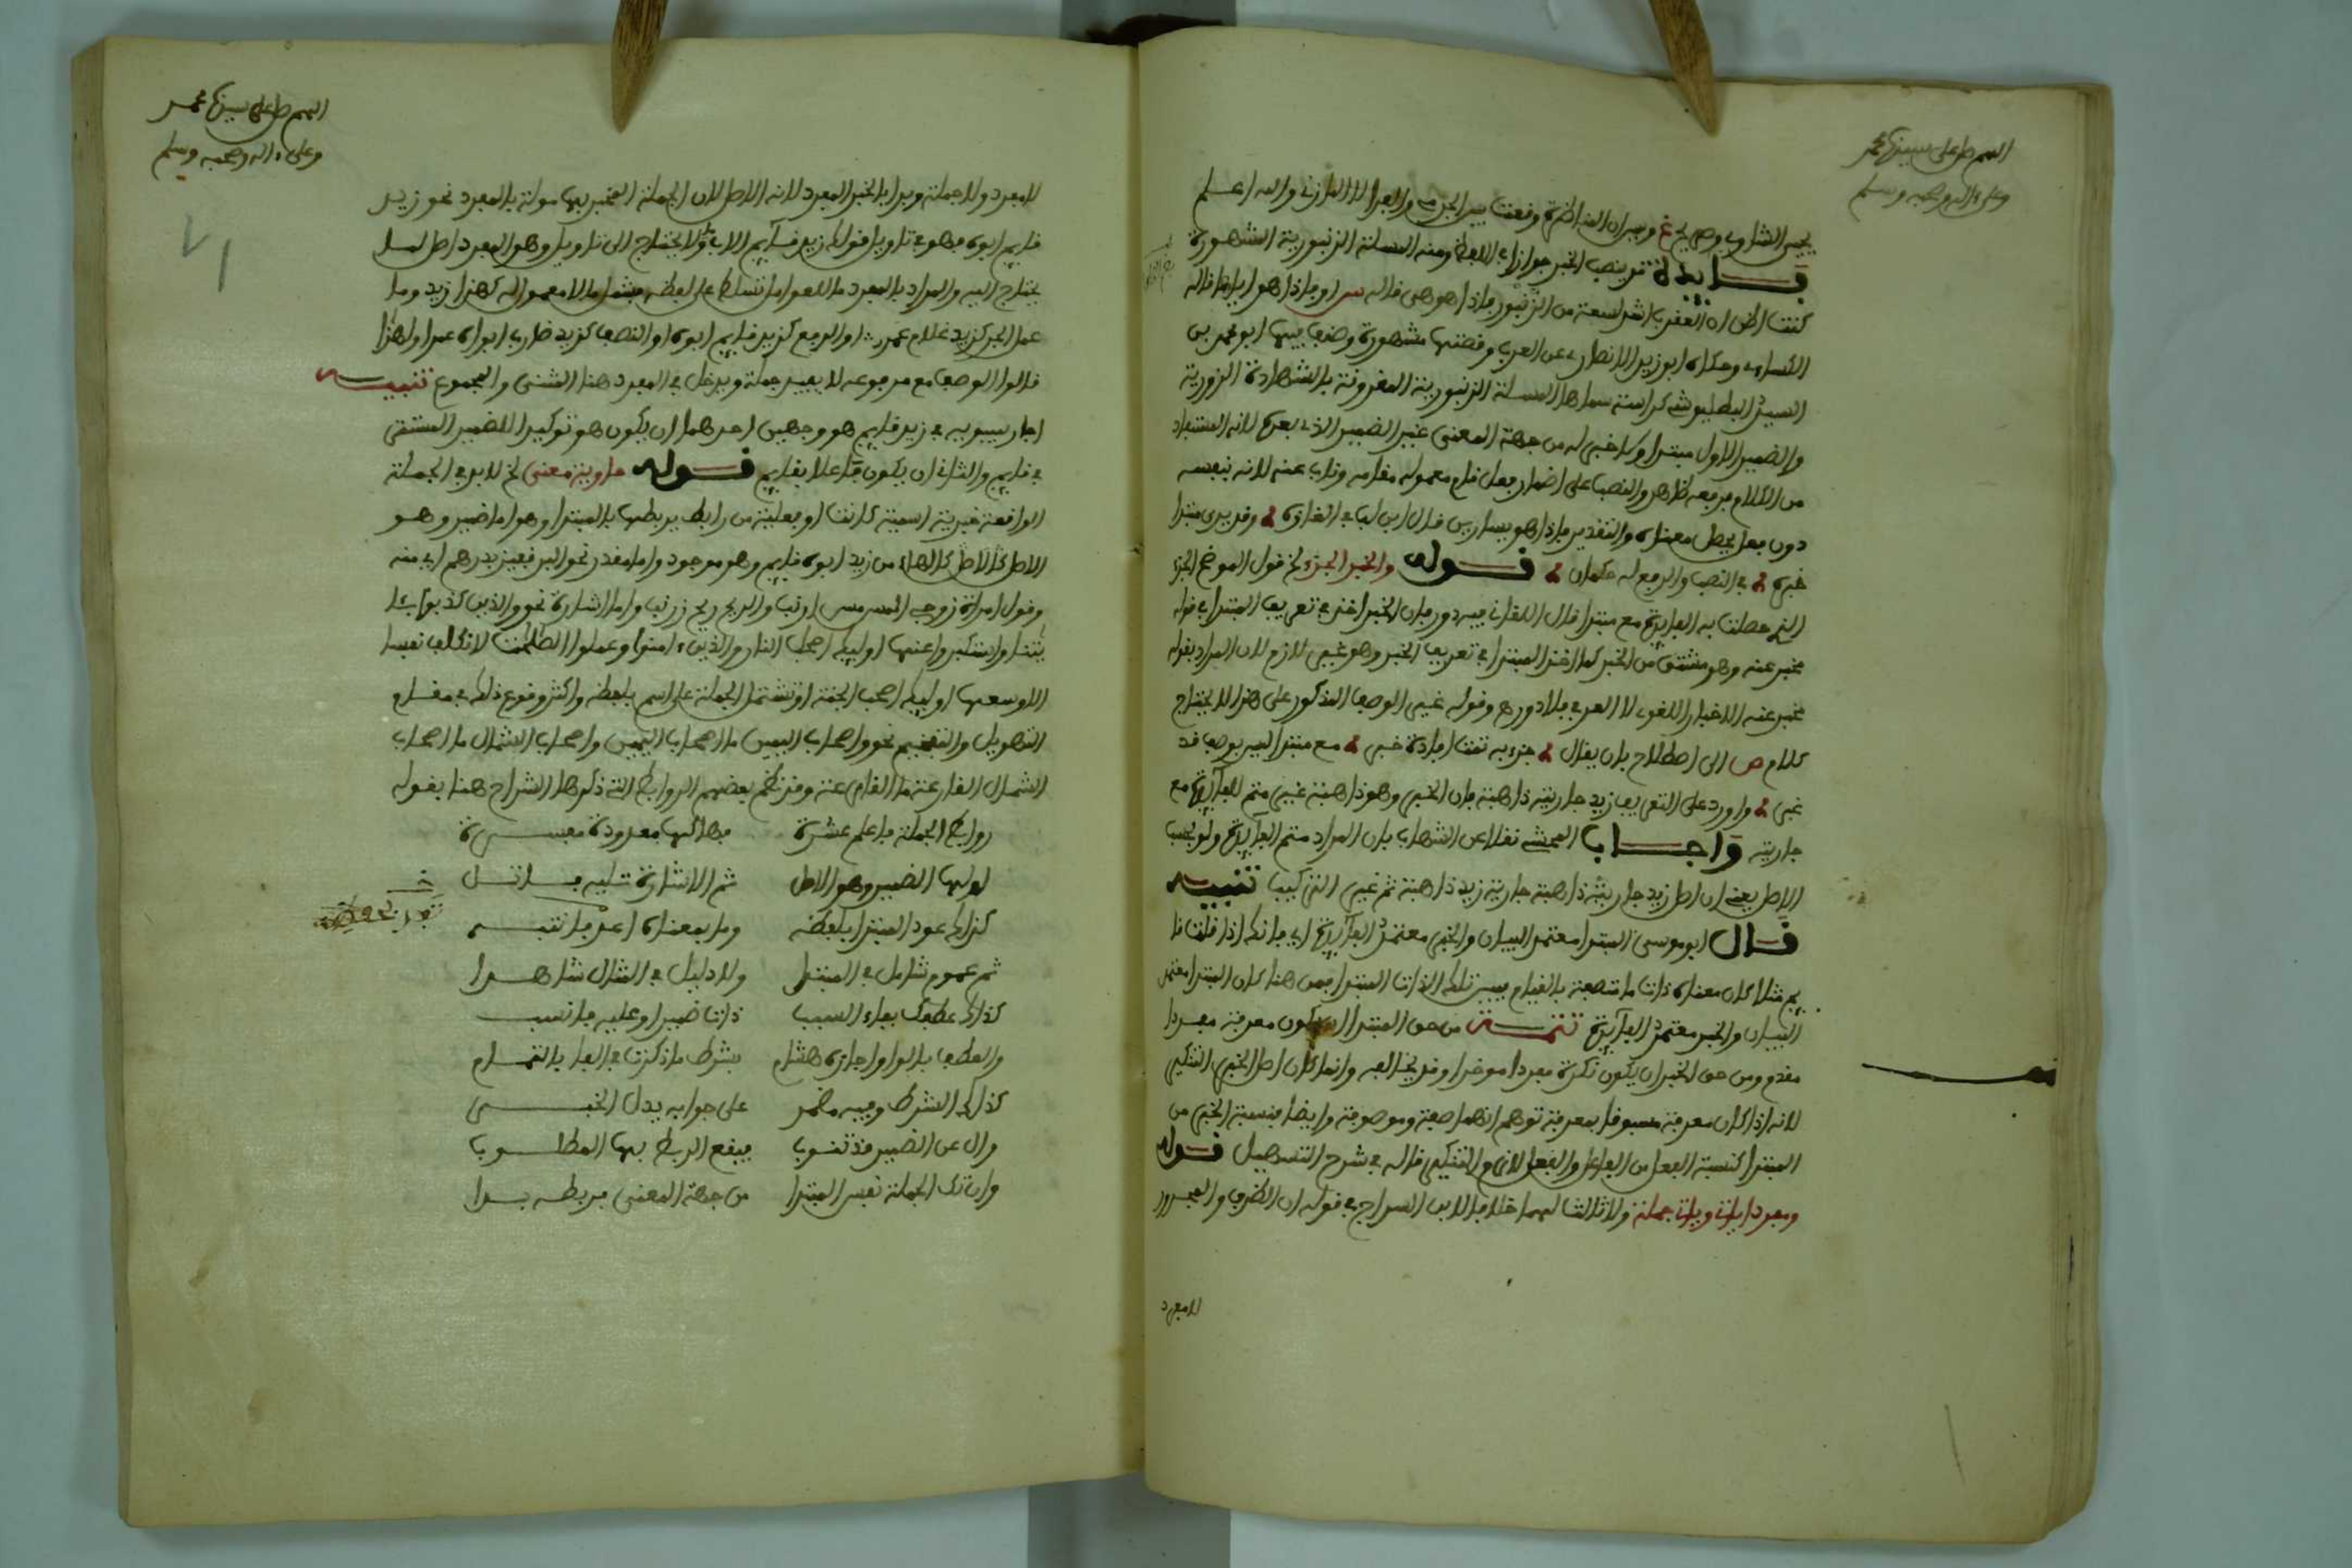 اللهم صل على سيدنا محمد
وعلى ءاله وصحبه وسلم
يحيى الشاوى وصريح غ وبيران المناظرة وفعت بين الجرمي والفرا لا المازني والله اعلم
فايدة قد ينصب الخبر جوازا في اللفظ ومنه المسئلة الزنبورية المشهورة
كنت اظن ان العقرب اشد لسعة من الزنبور فاذا هو هي قاله س او فاذا هو اياها قاله
الكساءى وحكاه ابو زيد الانصارى عن العرب وقصتها مشهورة وضع فيها ابو محمد بن
السيد البطليوسى كراسة سماها المسئلة الزنبورية المقرونة بالشهادة الزورية
والضمير الاول مبتدا ولا خبر له من جهة المعنى غير الضمير الذى بعده لانه المستفاد
من الكلام فرفعه ظاهر والنصب على اضمار فعل قام معموله مقامه وناب عنه لانه بنفسه
دون فعل يحصل معناه والتقدير فاذا هو يساويس قال ابن لب في الغازه وقد يرى مبتدا
خبره في النصب والرفع له حكمان قوله والخبر الجزء لخ قول الموضح الجزء
الذى حصلت به الفايدة مع مبتدا قال اللقاني فيه دور فان الخبر اخذ في تعريف المبتدا في قوله
مخبر عنه وهو مشتق من الخبر كما اخذ المبتدا في تعريف الخبر وهو غير لازم لان المراد بقوله
مخبر عنه الاخبار اللغوى لا العرفي فلا دور وقوله غير الوصف المذكور على هذا لا يحتاج
كلام ص الى اصطلاح بان يقال جزء به تمت افادة خبر مع مبتدا ليس بوصف قد
غبر واورد على التعريف زيد جاريته ذاهبة فان الخبر وهو ذاهبة غير متم للفايدة مع
جاريته واجاب المحشى نقلا عن الشهاب بان المراد متم الفايدة ولو بحسب
الاصل يعني ان اصل زيد جاريته ذاهبة جارية زيد ذاهبة ثم غير التركيب تنبيه
قال ابو موسى المبتدا معتمد البيان والخبر معتمد الفايدة اي فانك اذا قلت قا
يم مثلا كان معناه ذات ما متصفة بالقيام فبين تلك الذات المبتدا فمن هنا كان المبتدا معتمد
البيان والخبر معتمد الفايدة تتمة من حق المبتدا ان يكون معرفة مفردا
مقدم ومن حق الخبر ان يكون نكرة مفردا موخرا وقد يخالفه وانما كان اصل الخبر التنكير
لانه اذا كان معرفة مسبوقا بمعرفة توهم انهما صفة وموصوفة وايضا فنسبة الخبر من
المبتدا كنسبة الفعل من الفاعل والفعل لازم التنكير قاله في شرح التسهيل قوله
ومفردا ياتي وياتي جملة ولا ثالث لهما خلافا لابن السراج في قوله ان الظرف والمجرور
لا مفرد
اللهم صل على سيدنا محمد
وعلى ءاله وصحبه وسلم
٧١
لا مفرد ولا جملة وبدا بالخبر المفرد لانه الاصل لان الجملة المخبر بها مولة بالمفرد نحو زيد
قايم ابوه فهو في تاويل قولك زيد قايم الاب ولا يحتاج الى تاويل وهو المفرد اصل لما
يحتاج اليه والمراد بالمفرد ما للعوامل تسلط على لفظه مشتملا لا معمول له كهذا زيد وما
عمل الجر كزيد غلام عمرو او الرفع كزيد قايم ابوه او النصب كزيد ضارب ابوه عمرا ولهذا
قالوا الوصف مع مرفوعه لا يفيد جملة ويدخل في المفرد هنا المثنى والمجموع تنبيه
اجاز سيبويه في زيد قايم هو وجهين احدهما ان يكون هو توكيدا للضمير المستتر
في قايم والثاني ان يكون فاعلا بقايم قوله حاوية معنى لخ لابد في الجملة
الواقعة خبرية اسمية كانت او فعلية من رابط يربطها بالمبتدا وهو اما ضمير وهو
الاصل من زيد ابوه قايم وهو موجود واما مقدر نحو البر قفيز بدرهم اي منه
وقول امراة زوجى المس مس ارنب والريح ريح زرنب واما اشارة نحو والذين كذبوا بئا
يتنا واستكبروا عنها اوليك اصحب النار والذين ءامنوا وعملوا الصلحت لا نكلف نفسا
الا وسعها اوليك اصحب الجنة او تشتمل الجملة على اسم بلفظه واكثر وقوع ذلك في مقام
التهويل والتفخيم نحو واصحاب اليمين ما اصحاب اليمين واصحاب الشمال ما اصحاب
الشمال القارعة ما القارعة وقد نظم بعضهم الروابط التي ذكرها الشراح هنا بقوله
روابط الجملة فاعلم عشرة فهاكها معدودة مفسرة
اولها الضمير وهو الاصل ثم الاشارة تليه
كذاك عود المبتدا بلفظه وما بمعناه
ثم عموم شامل في المبتدا ولا دليل في المثال شاهدا
كذاك عطفك بفاء السبب ذات ضمير او عليه فانسب
والعطف بالواو اجازه هشام بشرط ما ذكرت في الفا بالتمام
كذاك الشرط وفيه مضمر على جوابه يدل الخبر
وال عن الضمير قد تنوب فيقع الربط بها المطلوب
وان تك الجملة نفس المبتدا من جهة المعنى فربطه بدا